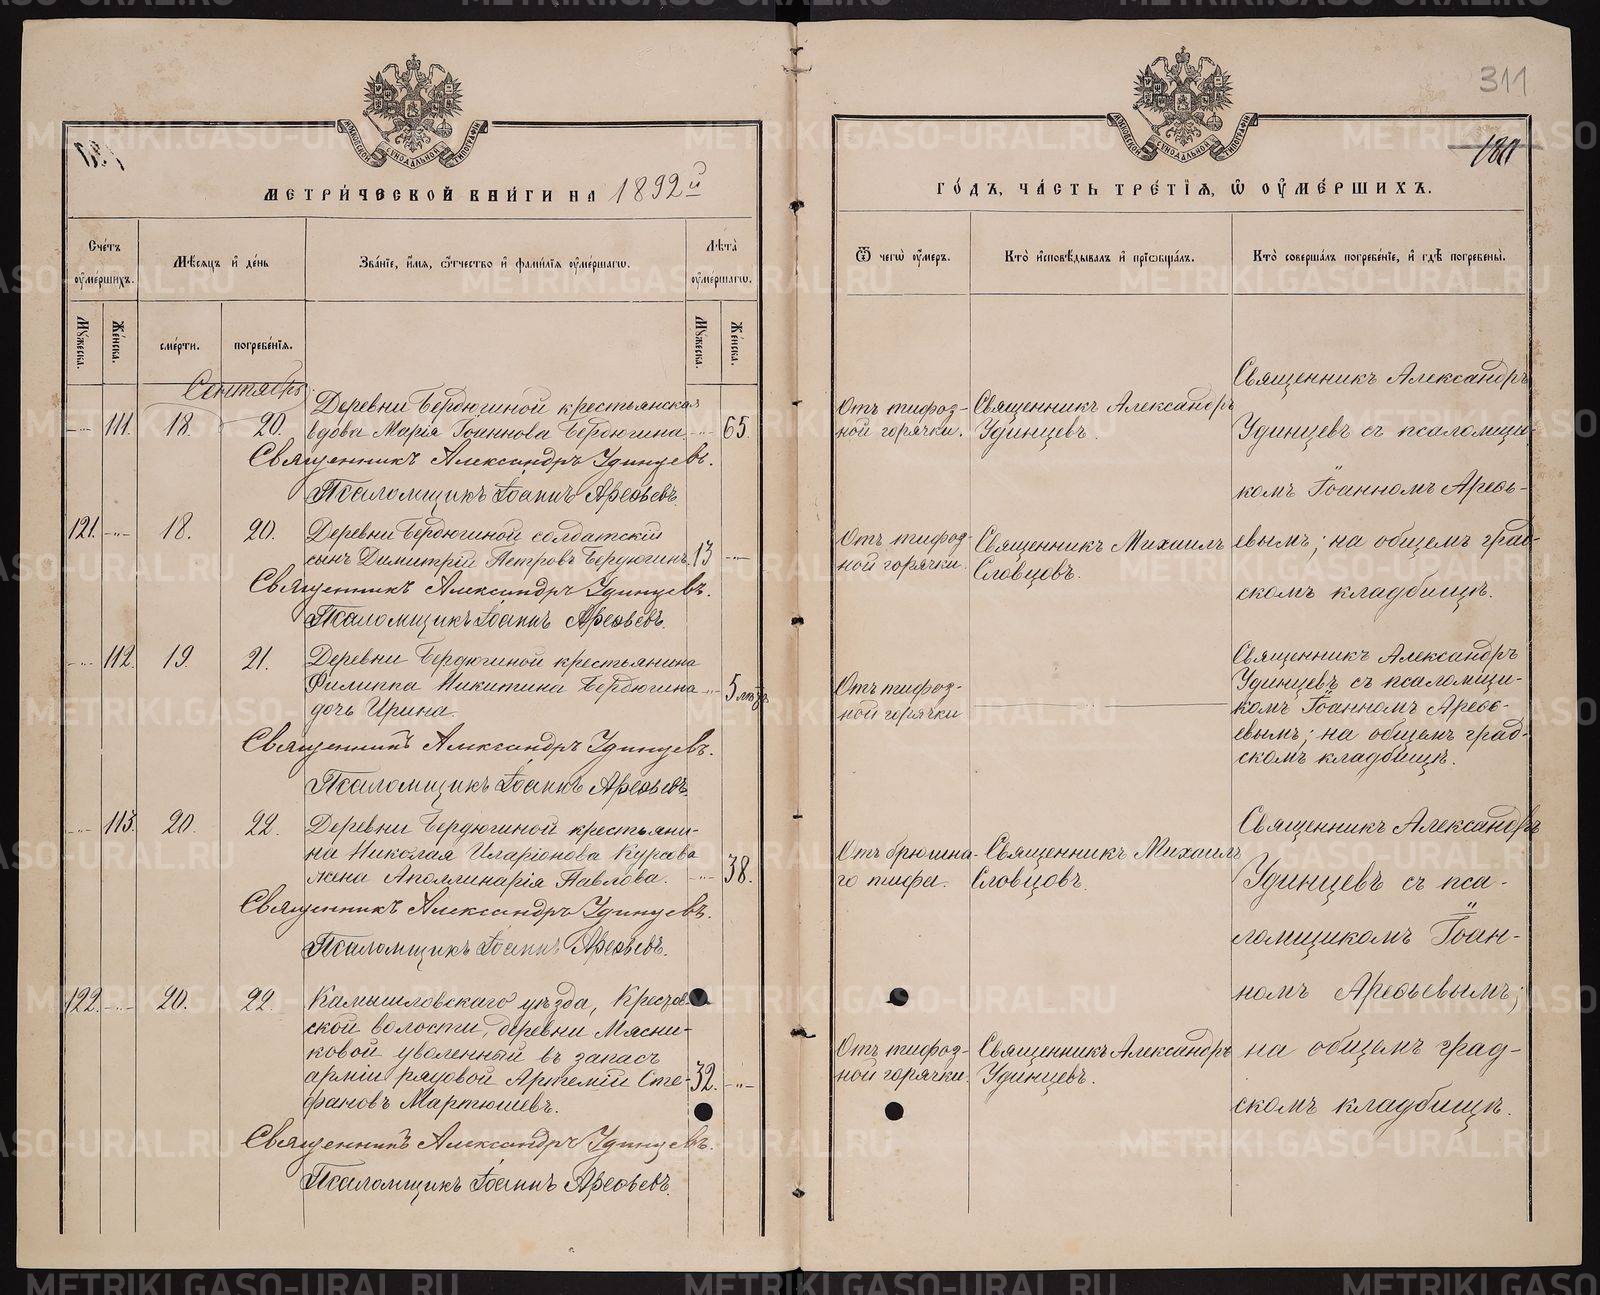 311
МЕТРИ́ЧЕСКОЙ КНИ́ГИ НА 1892й
ГО́ДЪ, ЧА́СТЬ ТРЕ́ТІѦ, Ѡ҆ ОУ҆МЕ́РШИХЪ.
Сче́тъ оу҆ме́ршихъ.
Мѣ́сѧцъ и҆ де́нь
Зва́нїе, и҆́мѧ, ѻ҆́тчество и҆ фами́лїѧ оу҆ме́ршагѡ.
Лѣ́та̀ оу҆ме́ршагѡ.
Ѿ чегѡ̀ оу҆́меръ.
Кто̀ и҆сповѣ́дывалъ и҆ прїѡбща́лъ.
Кто̀ соверша́лъ погребе́нїе, и҆ гдѣ̀ погребены̀.
Мꙋ́жеска.
Же́нска.
сме́рти.
погребе́нїѧ.
Мꙋ́жеска.
Же́нска.
Сентябрь
111. 18. 20.
Деревни Бердюгиной крестьянская
вдова Марія Іоаннова Бердюгина. 65.
Священникъ Александръ Удинцевъ.
Псаломщикъ Іоаннъ Арефьевъ.
Отъ тифоз-
ной горячки.
Священникъ Александръ
Удинцевъ.
Священникъ Александръ
Удинцевъ съ псаломщи-
комъ Іоанномъ Арефь-
евымъ; на общемъ град-
скомъ кладбищѣ.
121. 18. 20.
Деревни Бердюгиной солдатскій
сынъ Димитрій Петровъ Бердюгинъ. 13
Священникъ Александръ Удинцевъ.
Псаломщикъ Іоаннъ Арефьевъ.
Отъ тифоз-
ной горячки.
Священникъ Михаилъ
Словцовъ.
112. 19. 21.
Деревни Бердюгиной крестьянина
Филиппа Никитина Бердюгина 5 лѣтъ
дочь Ирина.
Священникъ Александръ Удинцевъ.
Псаломщикъ Іоаннъ Арефьевъ.
Отъ тифоз-
ной горячки
Священникъ Александръ
Удинцевъ съ псаломщи-
комъ Іоанномъ Арефь-
евымъ; на общемъ град-
скомъ кладбищѣ.
113. 20. 22.
Деревни Бердюгиной крестьяни-
на Николая Иларіонова Курсова
жена Аполлинарія Павлова. 38.
Священникъ Александръ Удинцевъ.
Псаломщикъ Іоаннъ Арефьевъ.
Отъ брюшна-
го тифа.
Священникъ Михаилъ
Словцовъ.
Священникъ Александръ
Удинцевъ съ пса-
ломщикомъ Іоан-
номъ Арефьевымъ;
на общемъ град-
скомъ кладбищѣ.
122. 20. 22.
Камышловскаго уѣзда,
ской волости, деревни Мясни-
ковой уволенный въ запасъ
арміи рядовой Артемій Сте-
фановъ Мартюшевъ. 32.
Священникъ Александръ Удинцевъ.
Псаломщикъ Іоаннъ Арефьевъ.
Отъ тифоз-
ной горячки.
Священникъ Александръ
Удинцевъ.
METRIKI.GASO-URAL.RU